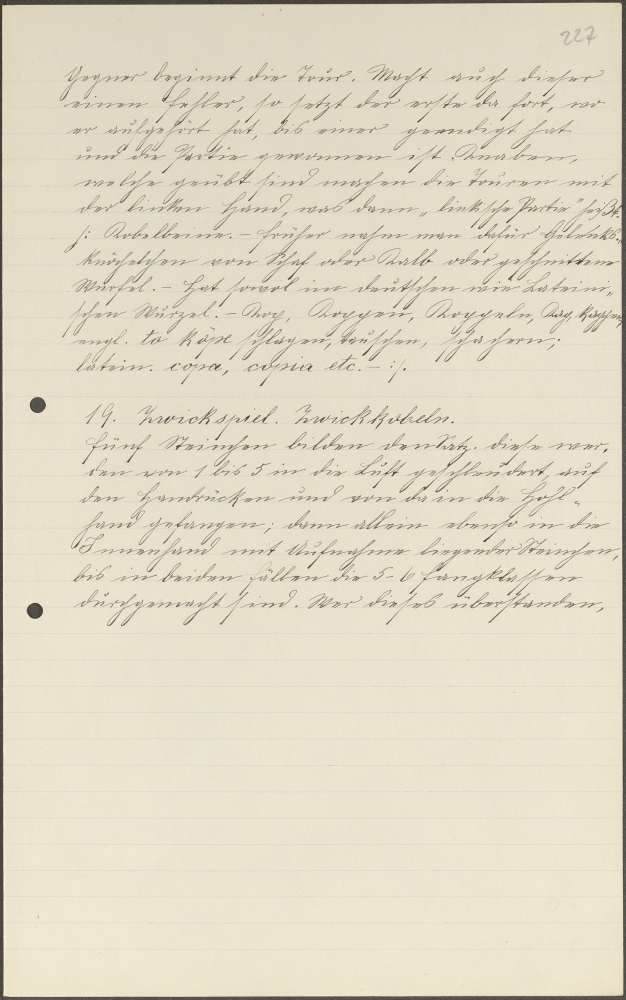 227
Gegner beginnt die Tour. Macht auch dieser
einen Fehler, so setzt der erste da fort, wo
er aufgehört hat, bis einer geendigt hat
und die Partie gewonnen ist. Knaben,
welche geübt sind machen die Touren mit
der linken Hand, was dann „linksche Partie" heißt.
/: Kobelbeine. – Früher nahm man dafür Gelenks-
knöchelchen von Schaf oder Kalb oder geschnittene
Würfel. – Hat sowol im deutschen wie Lateini-
schen Wurzel. – Kop, Koppen, Koppeln, Kap, Kappen,
engl. to köpe schlagen, tauschen, schachern;
latein. copa, copia etc. – :/.
19. Zwickspiel. Zwickkobeln.
Fünf Steinchen bilden den Satz. diese wer-
den von 1 bis 5 in die Luft geschleudert, auf
den Handrücken und von da in die Hohl-
hand gefangen; dann allein ebenso in die
Innenhand mit Aufnahme liegender Steinchen,
bis in beiden Fällen die 5-6 Fangklassen
durchgemacht sind. Wer dieses überstanden,